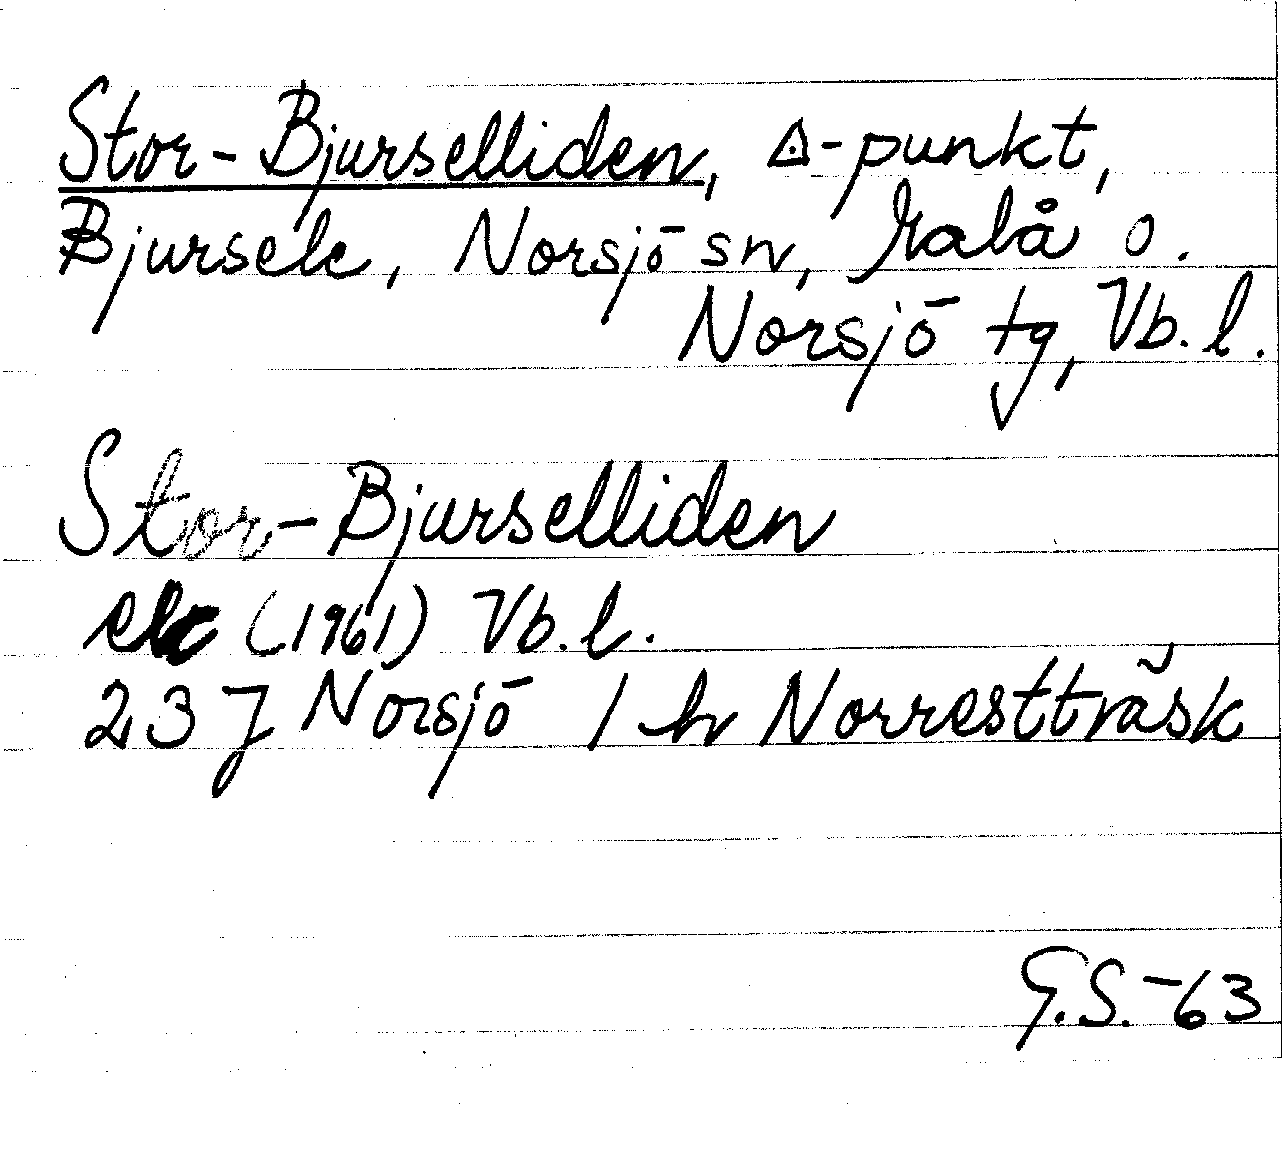 Stor-Bjurselliden, ◬-punkt,
Bjursele, Norsjö sn, Malå o.
Norsjö tg, Vb. l.
Stor-Bjurselliden
ek (1961) Vb. l.
23 J Norsjö 1 h Norrestträsk
G.S. -63